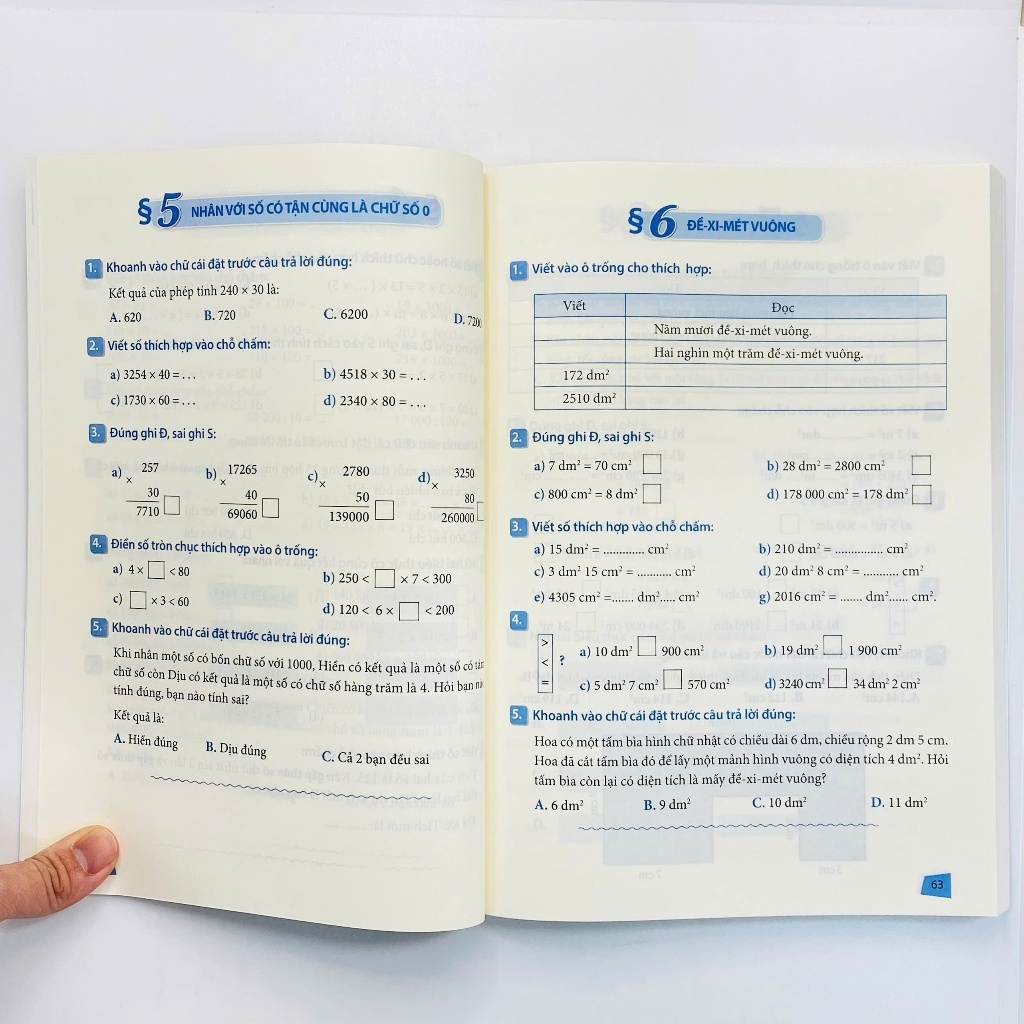 §5 NHÂN VỚI SỐ CÓ TẬN CÙNG LÀ CHỮ SỐ 0
1. Khoanh vào chữ cái đặt trước câu trả lời đúng:
Kết quả của phép tính 240 × 30 là:
A. 620 B. 720 C. 6200 D. 7200
2. Viết số thích hợp vào chỗ chấm:
a) 3254 × 40 = . . . b) 4518 × 30 = . . .
c) 1730 × 60 = . . . d) 2340 × 80 = . . .
3. Đúng ghi Đ, sai ghi S:
a) 257 b) 17265 c) 2780 d) 3250
× × × ×
30 40 50 80
7710 69060 139000 260000
4. Điền số tròn chục thích hợp vào ô trống:
a) 4 × □ < 80 b) 250 < □ × 7 < 300
c) □ × 3 < 60 d) 120 < 6 × □ < 200
5. Khoanh vào chữ cái đặt trước câu trả lời đúng:
Khi nhân một số có bốn chữ số với 1000, Hiền có kết quả là một số có
chữ số còn Dịu có kết quả là một số có chữ số hàng trăm là 4. Hỏi bạn
tính đúng, bạn nào tính sai?
Kết quả là:
A. Hiền đúng B. Dịu đúng C. Cả 2 bạn đều sai
§6 ĐỀ-XI-MÉT VUÔNG
1. Viết vào ô trống cho thích hợp:
Viết Đọc
Năm mươi đề-xi-mét vuông.
Hai nghìn một trăm đề-xi-mét vuông.
172 dm²
2510 dm²
2. Đúng ghi Đ, sai ghi S:
a) 7 dm² = 70 cm² □ b) 28 dm² = 2800 cm² □
c) 800 cm² = 8 dm² □ d) 178 000 cm² = 178 dm² □
3. Viết số thích hợp vào chỗ chấm:
a) 15 dm² = ............. cm² b) 210 dm² = ............... cm²
c) 3 dm² 15 cm² = ........... cm² d) 20 dm² 8 cm² = ........... cm²
e) 4305 cm² =....... dm²..... cm² g) 2016 cm² = ....... dm²...... cm².
4.
> < = ? a) 10 dm² □ 900 cm² b) 19 dm² □ 1 900 cm²
c) 5 dm² 7 cm² □ 570 cm² d) 3240 cm² □ 34 dm² 2 cm²
5. Khoanh vào chữ cái đặt trước câu trả lời đúng:
Hoa có một tấm bìa hình chữ nhật có chiều dài 6 dm, chiều rộng 2 dm 5 cm.
Hoa đã cắt tấm bìa đó để lấy một mảnh hình vuông có diện tích 4 dm². Hỏi
tấm bìa còn lại có diện tích là mấy đề-xi-mét vuông?
A. 6 dm² B. 9 dm² C. 10 dm² D. 11 dm²
63